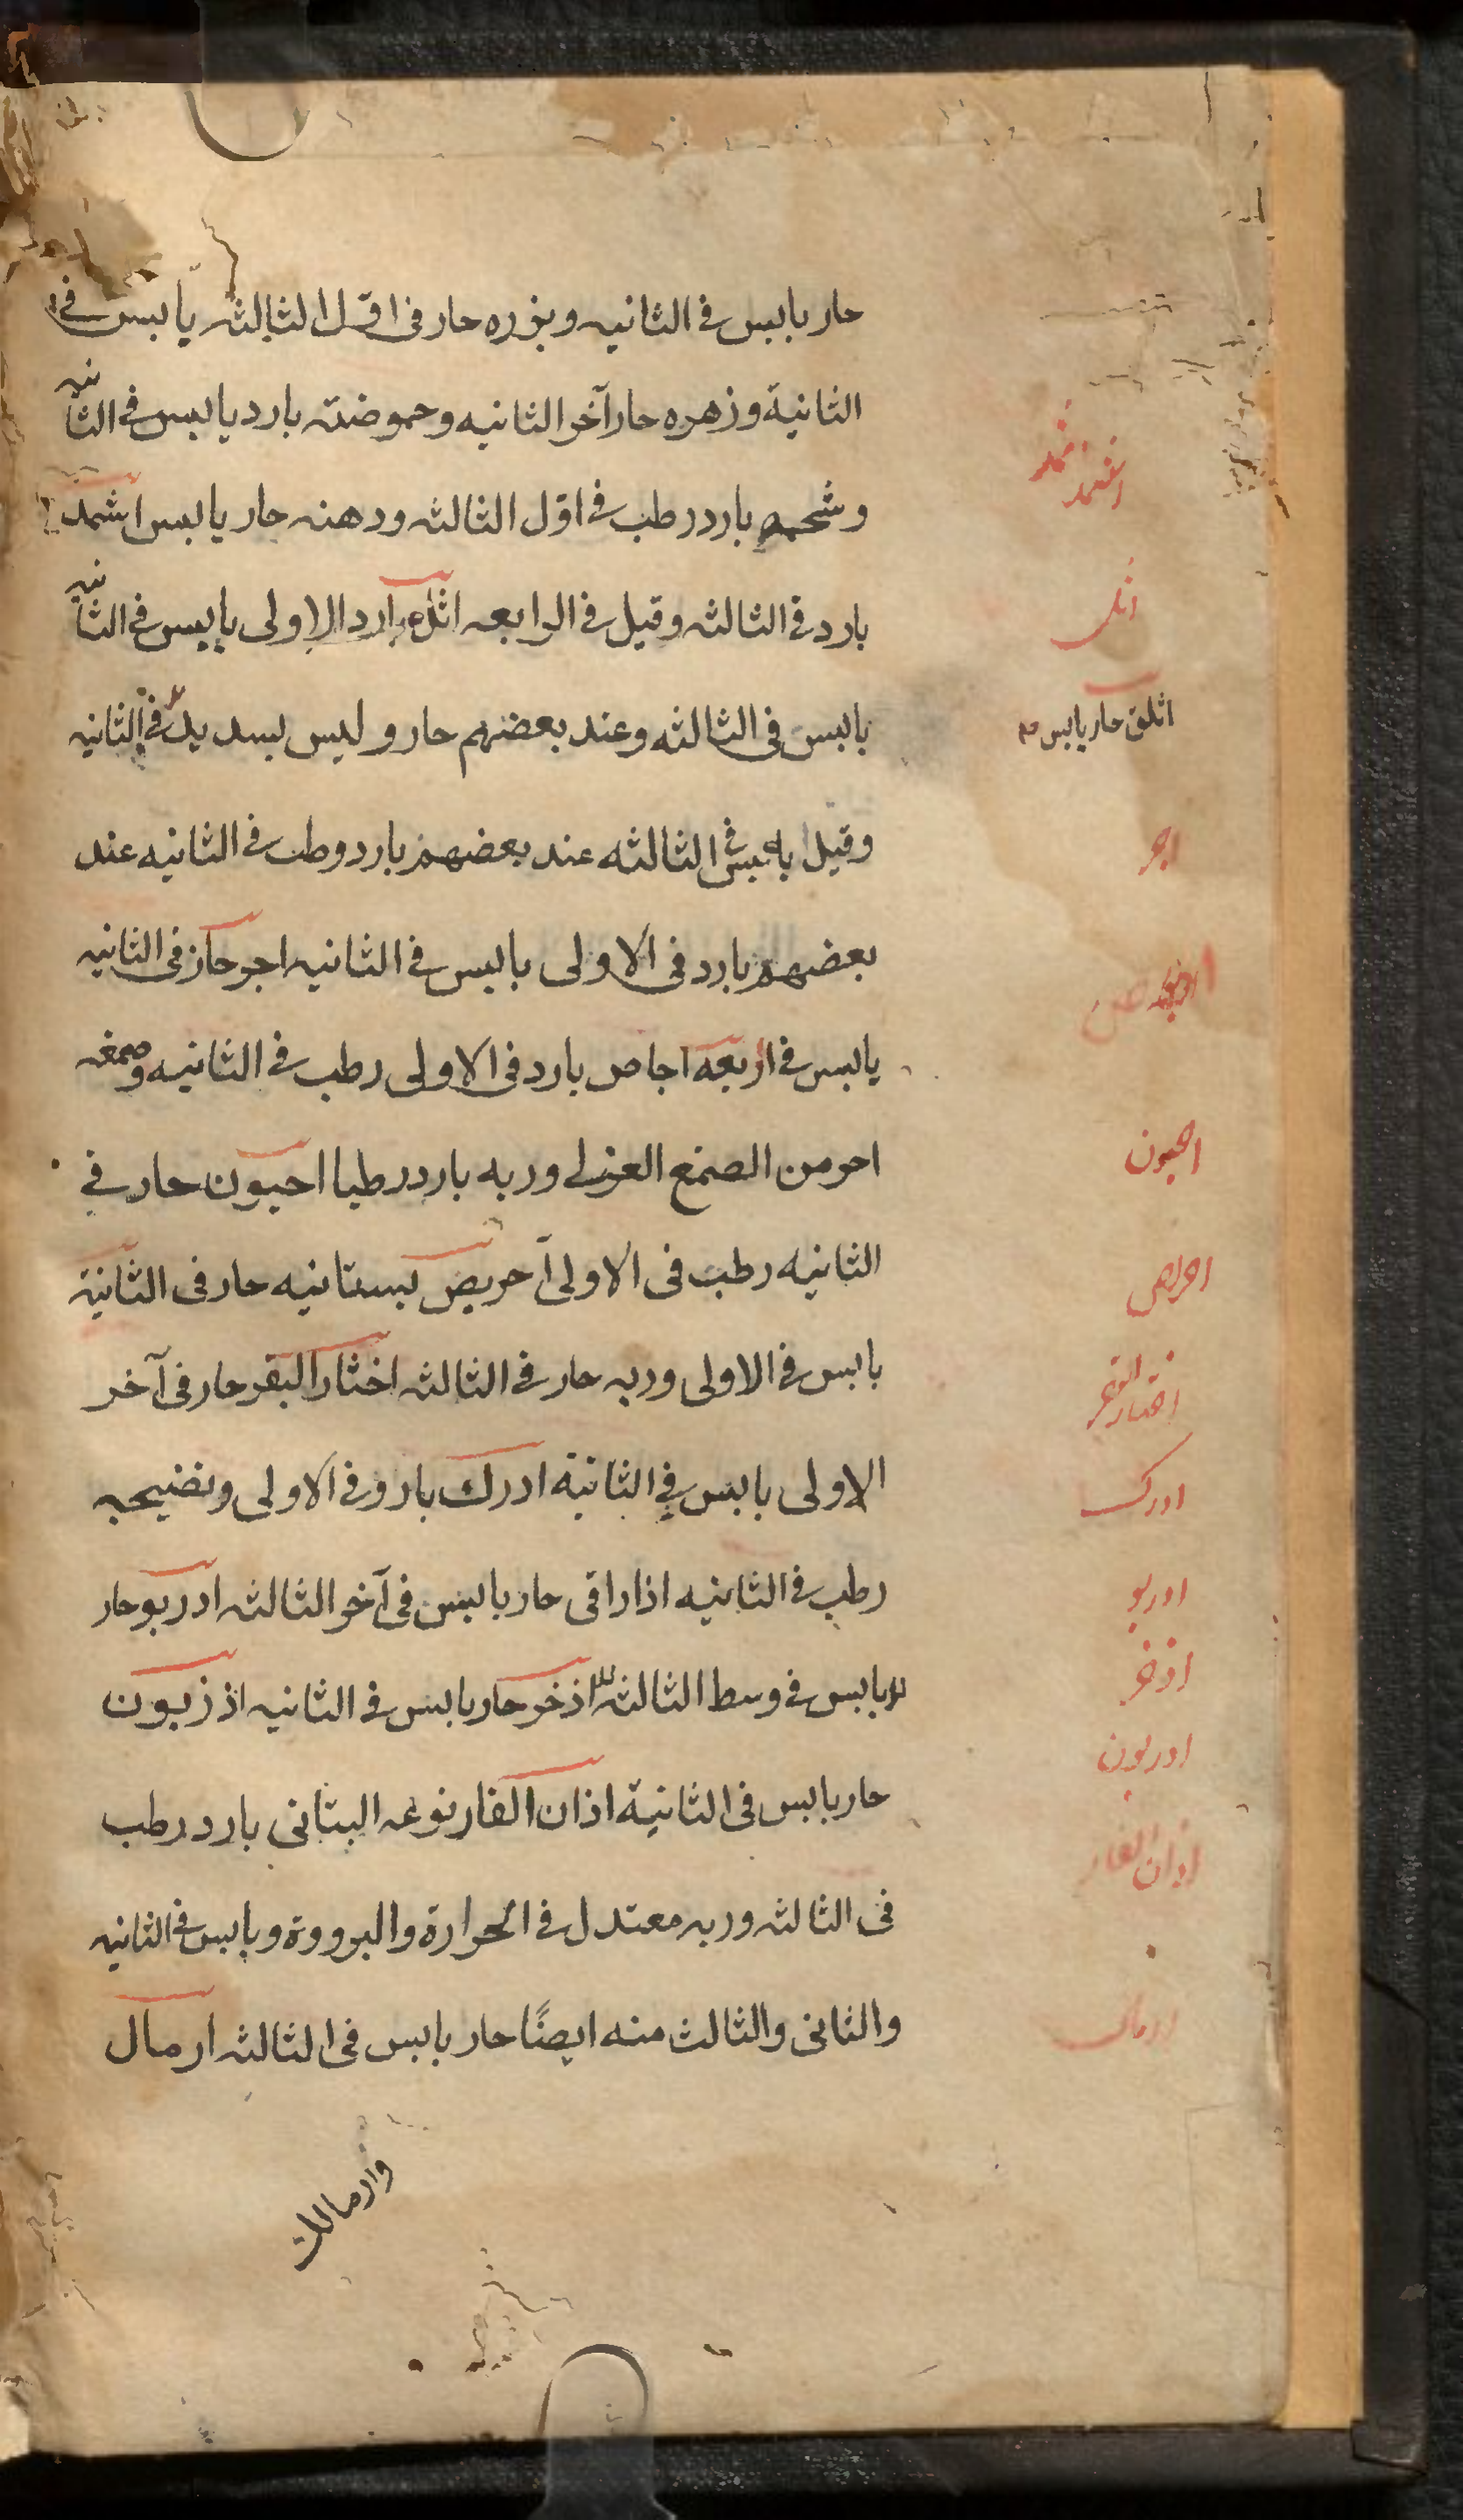 حار يابس فى الثانيه وبزره حار فى اوّل الثالثه يابس فى
الثانية وزهره حار آخر الثانيه وحموضته بارد يابس فى الثانيه
وشحمه بارد رطب فى اوّل الثالثه ودهنه حار يابس اثمد
بارد فى الثالثه وقيل فى الرابعه اثل بارد الاولى يابس فى الثانيه
يابس فى الثالثه وعند بعضهم حار وليس بسديد فى الثانيه
وقيل يابس فى الثالثه عند بعضهم بارد وطب فى الثانيه عند
بعضهم بارد فى الاولى يابس فى الثانيه اجر حار فى الثانيه
يابس فى اربعه اجاص بارد فى الاولى رطب فى الثانيه وصمغه
احر من الصمغ العربى وربه بارد رطبا احيون حار فى
الثانيه رطب فى الاولى احريض بستانيه حار فى الثانية
يابس فى الاولى وربه حار فى الثالثه اخثار البقر حار فى آخر
الاولى يابس فى الثانية ادرك بارد فى الاولى ونضيجه
رطب فى الثانيه اذاراقى حار يابس فى آخر الثالثه ادريو حار
يابس فى وسط الثالثه اذخر حار يابس فى الثانيه اذزيون
حار يابس فى الثانية اذان الفار نوعه البستانى بارد رطب
فى الثالثه وربه معتدل فى الحرارة والبرودة ويابس فى الثانيه
والثانى والثالث منه ايضًا حار يابس فى الثالثه ارمال
وارمالك
اثل
اثلق حار يابس م
اجر
احيون
احريض
اخثار البقر
ادرك
ادريو
اذخر
ادريون
اذان الفار
ارمال